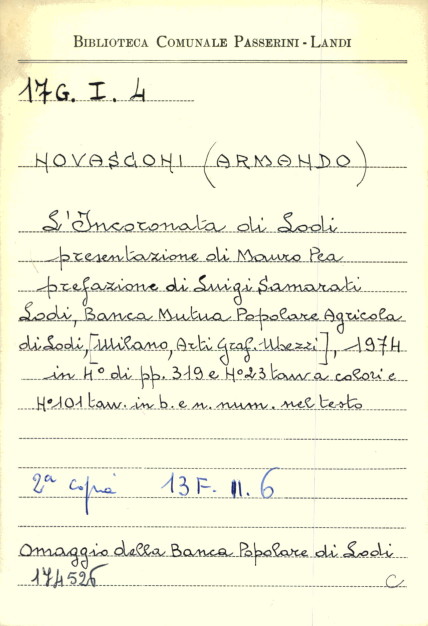 BIBLIOTECA COMUNALE PASSERINI-LANDI
17G. I. 4
NOVASCONI (ARMANDO)
L'Incoronata di Lodi
presentazione di Mauro Pea
prefazione di Luigi Samarati
Lodi, Banca Mutua Popolare Agricola
di Lodi, [Milano, Arti Graf. Ubezzi], 1974
in 4° di pp. 319 e N° 23 tav. a colori e
N° 101 tav. in b. e n. num. nel testo
2ª copia 13 F. II. 6
Omaggio della Banca Popolare di Lodi
174526 C